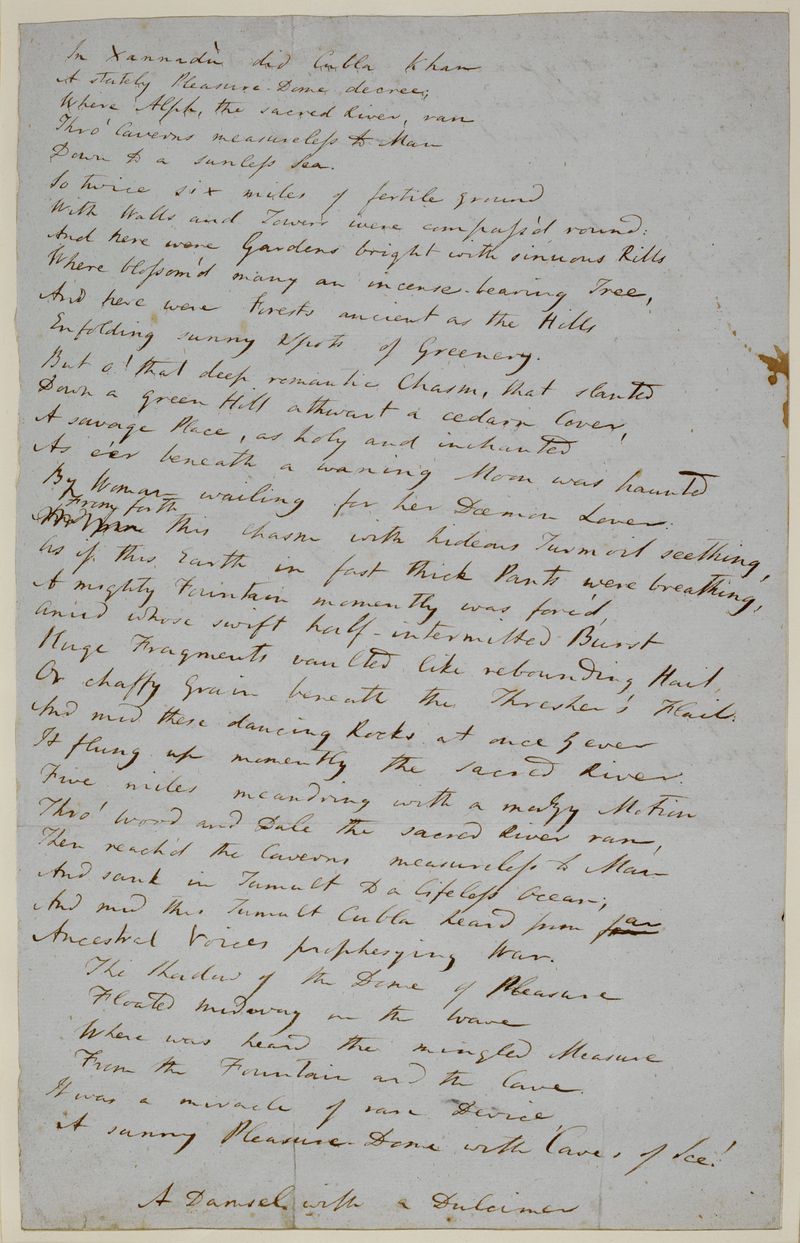 In Xannadù did Cubla Khan
A stately Pleasure-Dome decree;
Where Alph, the sacred River, ran
Thro' Caverns measureless to Man
Down to a sunless Sea.
So twice six miles of fertile ground
With Walls and Towers were compass'd round:
And here were Gardens bright with sinuous Rills
Where blossom'd many an incense-bearing Tree,
And here were Forests ancient as the Hills
Enfolding sunny Spots of Greenery.
But o! that deep romantic Chasm, that slanted
Down a green Hill athwart a cedarn Cover,
A savage Place, as holy and inchanted
As e'er beneath a waning Moon was haunted
By Woman wailing for her Dæmon Lover:
From forth
this Chasm with hideous Turmoil seething,
As if this Earth in fast thick Pants were breathing,
A mighty Fountain momently was forc'd,
Amid whose swift half-intermitted Burst
Huge Fragments vaulted like rebounding Hail,
Or chaffy Grain beneath the Thresher's Flail:
And mid these dancing Rocks at once & ever
It flung up momently the sacred River.
Five miles meandring with a mazy Motion
Thro' Wood and Dale the sacred River ran,
Then reach'd the Caverns measureless to Man
And sank in Tumult to a lifeless Ocean;
And mid this Tumult Cubla heard from far
Ancestral Voices prophesying War.
The Shadow of the Dome of Pleasure
Floated midway on the Wave
Where was heard the mingled Measure
From the Fountain and the Cave.
It was a miracle of rare Device,
A sunny Pleasure-Dome with Caves of Ice!
A Damsel with a Dulcimer